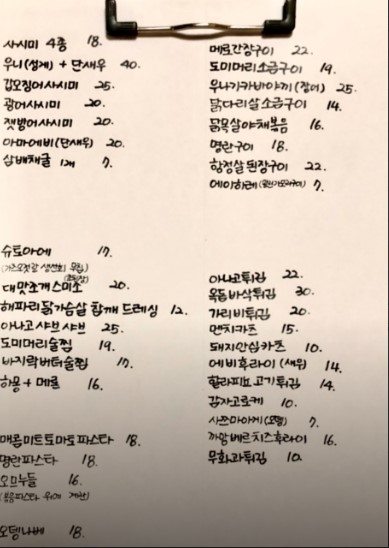 사시미 4종 18.
우니(성게) + 단새우 40.
갑오징어사시미 25.
광어사시미 20.
잿방어사시미 20.
아마에비(단새우) 20.
삼배채굴 1개 7.
슈토아에 17.
대맛조개스미소 20.
해파리닭가슴살 참깨 드레싱 12.
아나고샤브샤브 25.
도미머리술찜 19.
바지락버터술찜 17.
하몽 + 메론 16.
매콤미트토마토파스타 18.
명란파스타 18.
오므누들 16.
오뎅나베 18.
메로간장구이 22.
도미머리소금구이 19.
우나기카바야끼 (장어) 25.
닭다리살소금구이 14.
닭목살야채볶음 16.
명란구이 18.
항정살된장구이 22.
에이히레 7.
아나고튀김 22.
옥돔바삭튀김 30.
가리비튀김 20.
멘치카츠 15.
돼지안심카츠 10.
에비후라이 (새우) 14.
할라피뇨고기튀김 14.
감자고로케 10.
7.
까망베르치즈후라이 16.
무화과튀김 10.